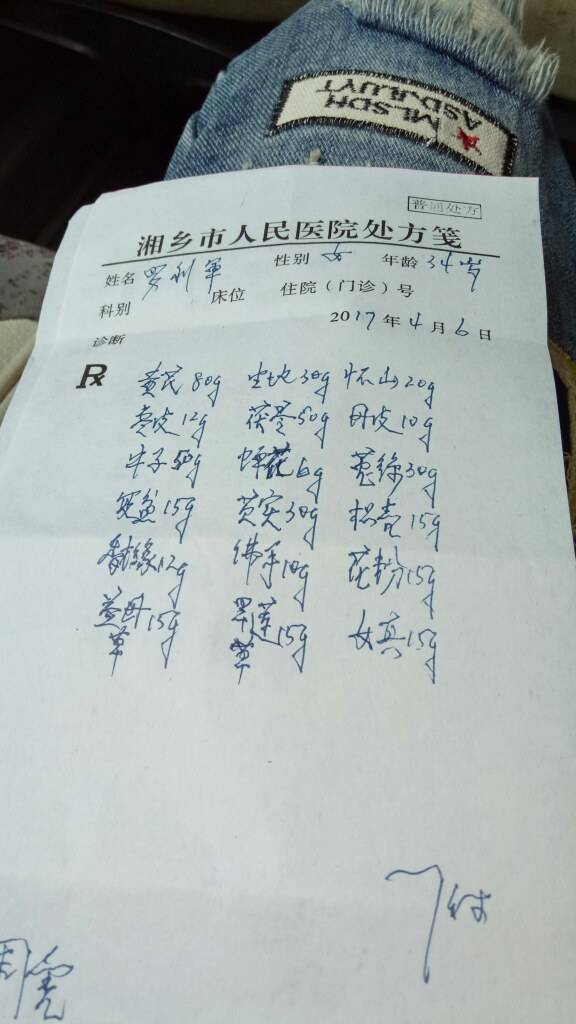 MLSDH
ASDJLUYT
普通处方
湘乡市人民医院处方笺
姓名 罗利军 性别 女 年龄 34岁
科别 床位 住院（门诊）号
2017年4月6日
诊断
R
黄芪80g 生地30g 怀山20g
12g 茯苓50g 丹皮10g
牛子50g 蝉花6g 菟絲30g
15g 芡实30g 枳壳15g
香椽12g 佛手10g 花粉15g
益母草15g 旱莲草15g 女真15g
7付